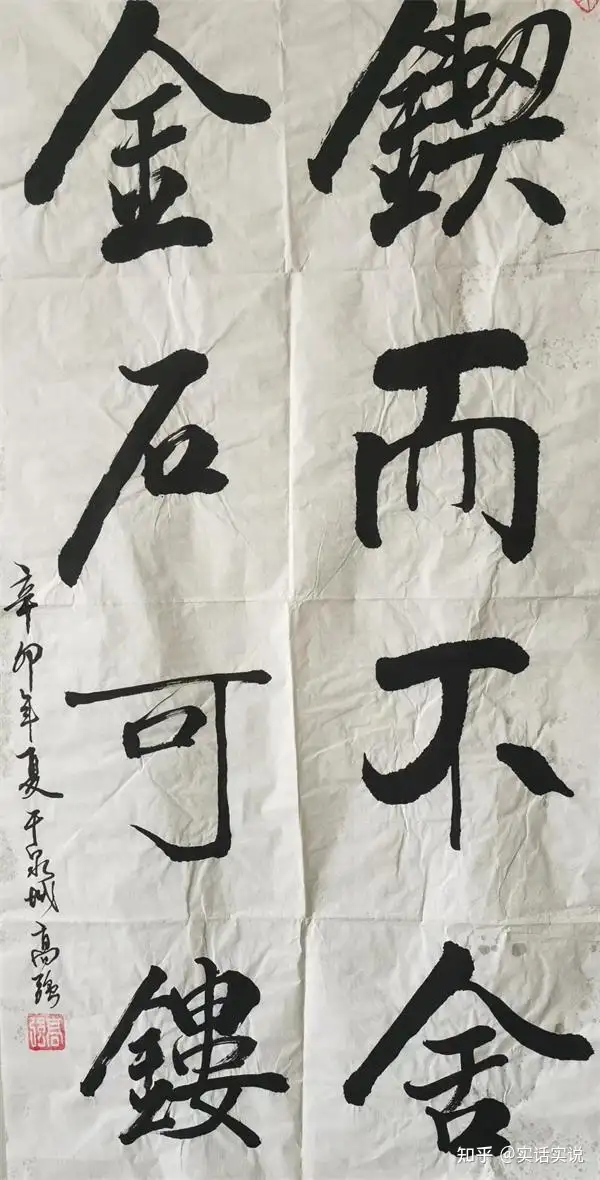 鍥而不舍
金石可鏤
辛卯年夏于泉城 高强
知乎 @实话实说